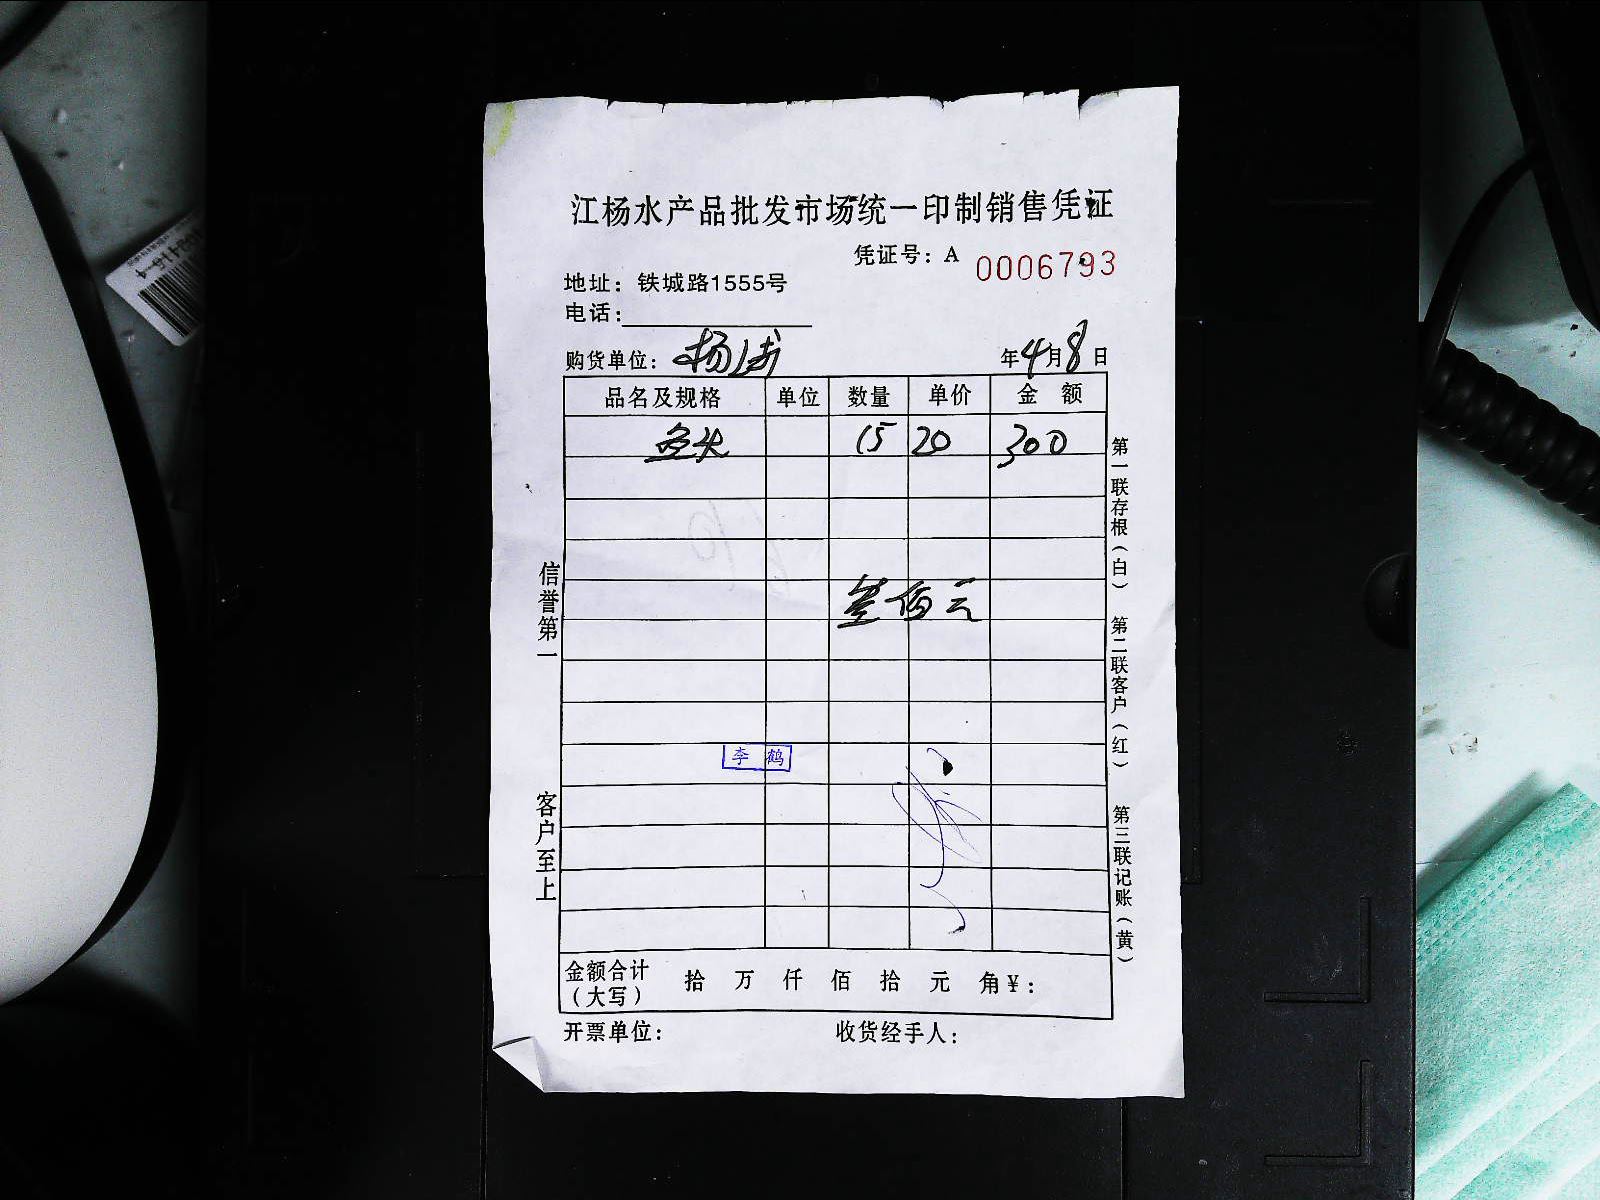 江杨水产品批发市场统一印制销售凭证
凭证号：A 0006793
地址：铁城路1555号
电话：
购货单位：杨 年4月8日
品名及规格 单位 数量 单价 金额
鱼头 15 20 300
叁佰元
李鹤
金额合计（大写） 拾 万 仟 佰 拾 元 角 ¥：
开票单位： 收货经手人：
信誉第一
客户至上
第一联存根（白）
第二联客户（红）
第三联记账（黄）